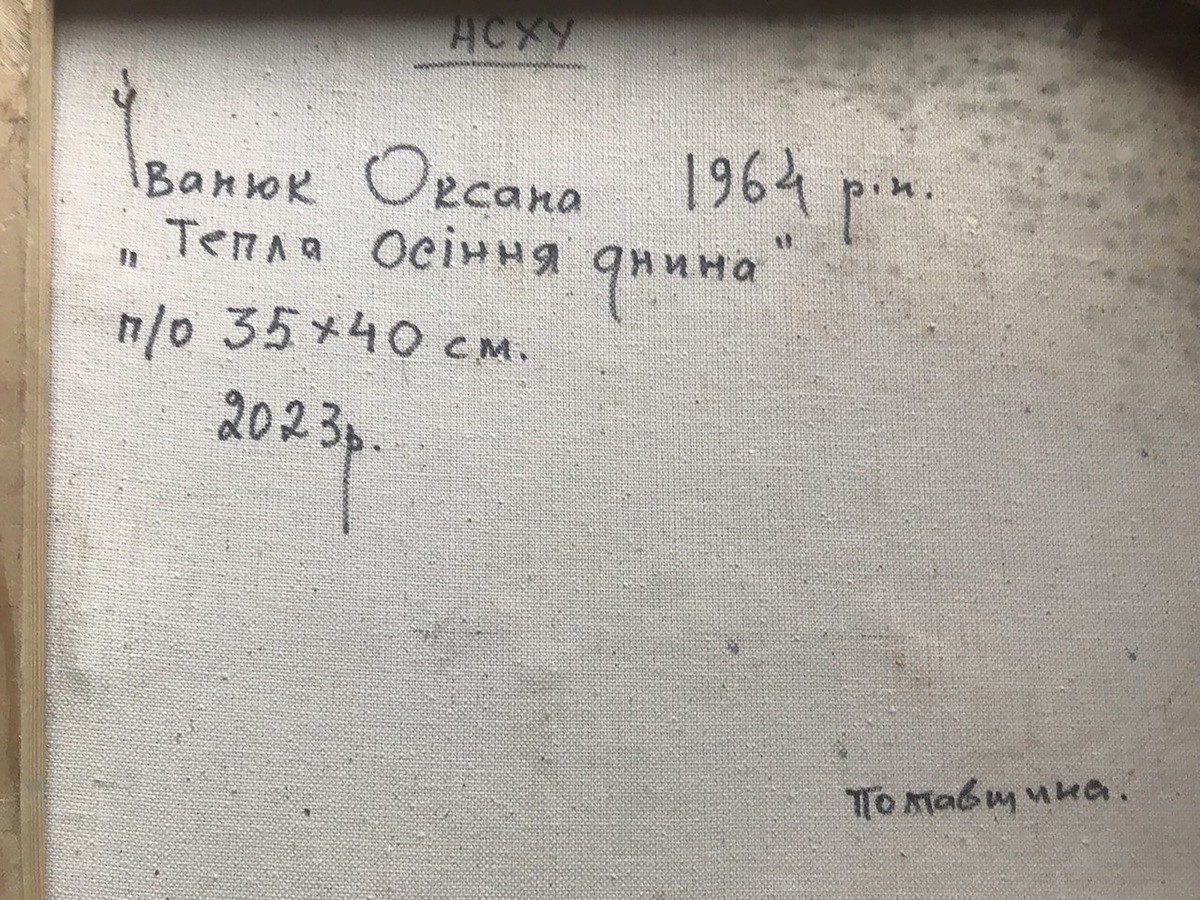 НСХУ
Іванюк Оксана 1964 р.н.
„Тепла осіння днина"
п/о 35×40 см.
2023р.
Полтавщина.